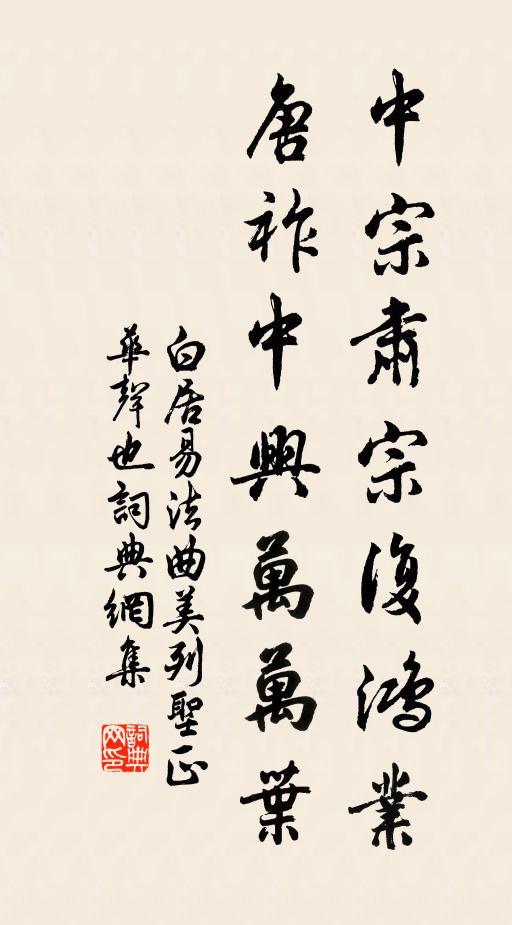 中宗肅宗復鴻業
唐祚中興萬萬葉
白居易法曲美列聖正
華聲也詞典網集
詞典
网印